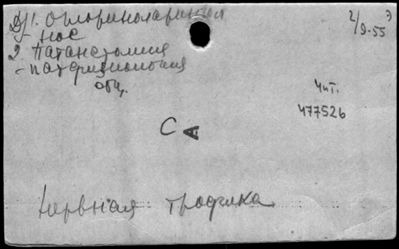 1. Оториноларингия
нос
2 Патанатомия
- патфизиология
общ.
2/9-55
Чит.
477526
С
Нервная трофика